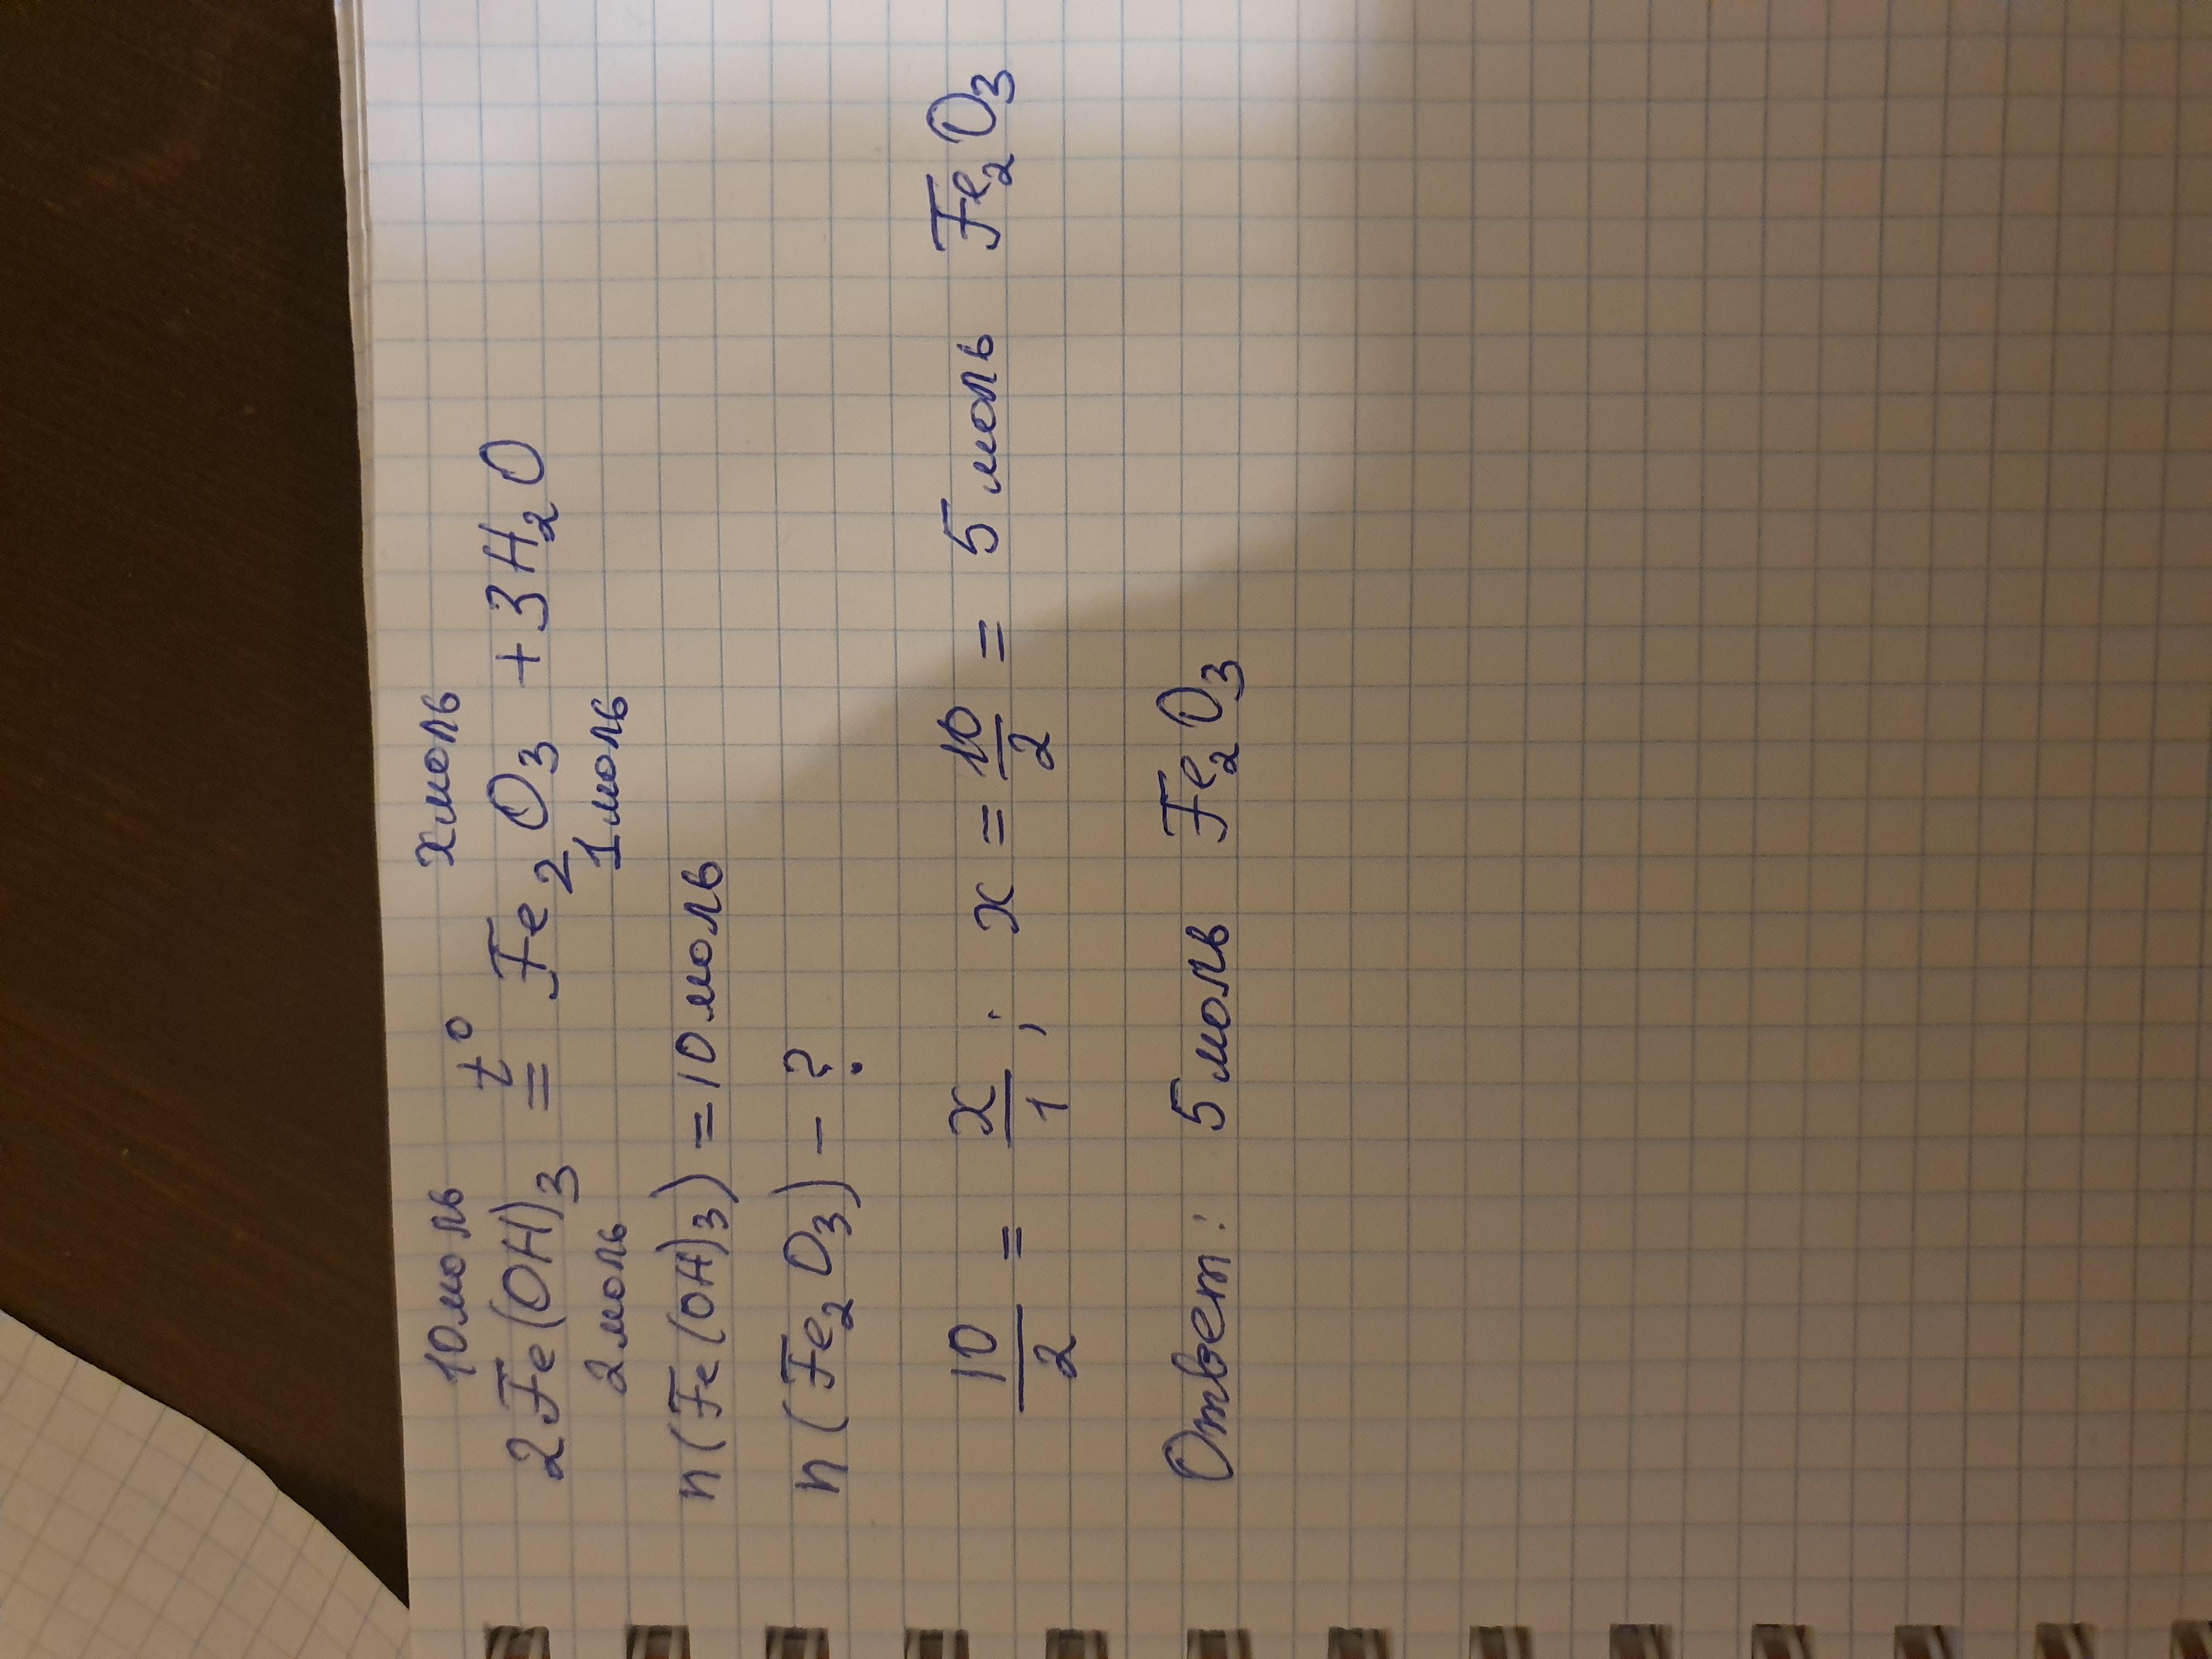 10моль xмоль
2Fe(OH)₃ =t° Fe₂O₃ + 3H₂O
2моль 1моль
n(Fe(OH)₃) = 10моль
n(Fe₂O₃) - ?
10/2 = x/1; x = 10/2 = 5 моль Fe₂O₃
Ответ: 5моль Fe₂O₃